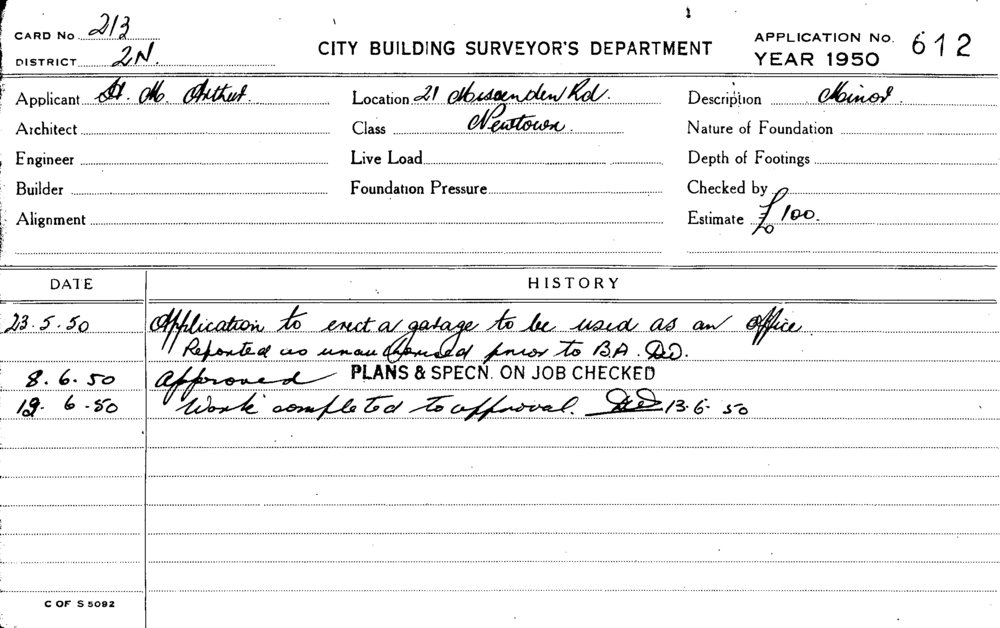 CARD No 213
DISTRICT 2N.
CITY BUILDING SURVEYOR'S DEPARTMENT
APPLICATION No. 612
YEAR 1950
Applicant H. M. Arthur.
Architect
Engineer
Builder
Alignment
Location 21 Missenden Rd.
Class Newtown.
Live Load
Foundation Pressure
Description Minor.
Nature of Foundation
Depth of Footings
Checked by
Estimate £100.
DATE HISTORY
23.5.50 Application to erect a garage to be used as an office.
Reported as unauthorised prior to B.A.
8.6.50 Approved PLANS & SPECN. ON JOB CHECKED
6.50 Work completed to approval. 13.6.50
C OF S 5092